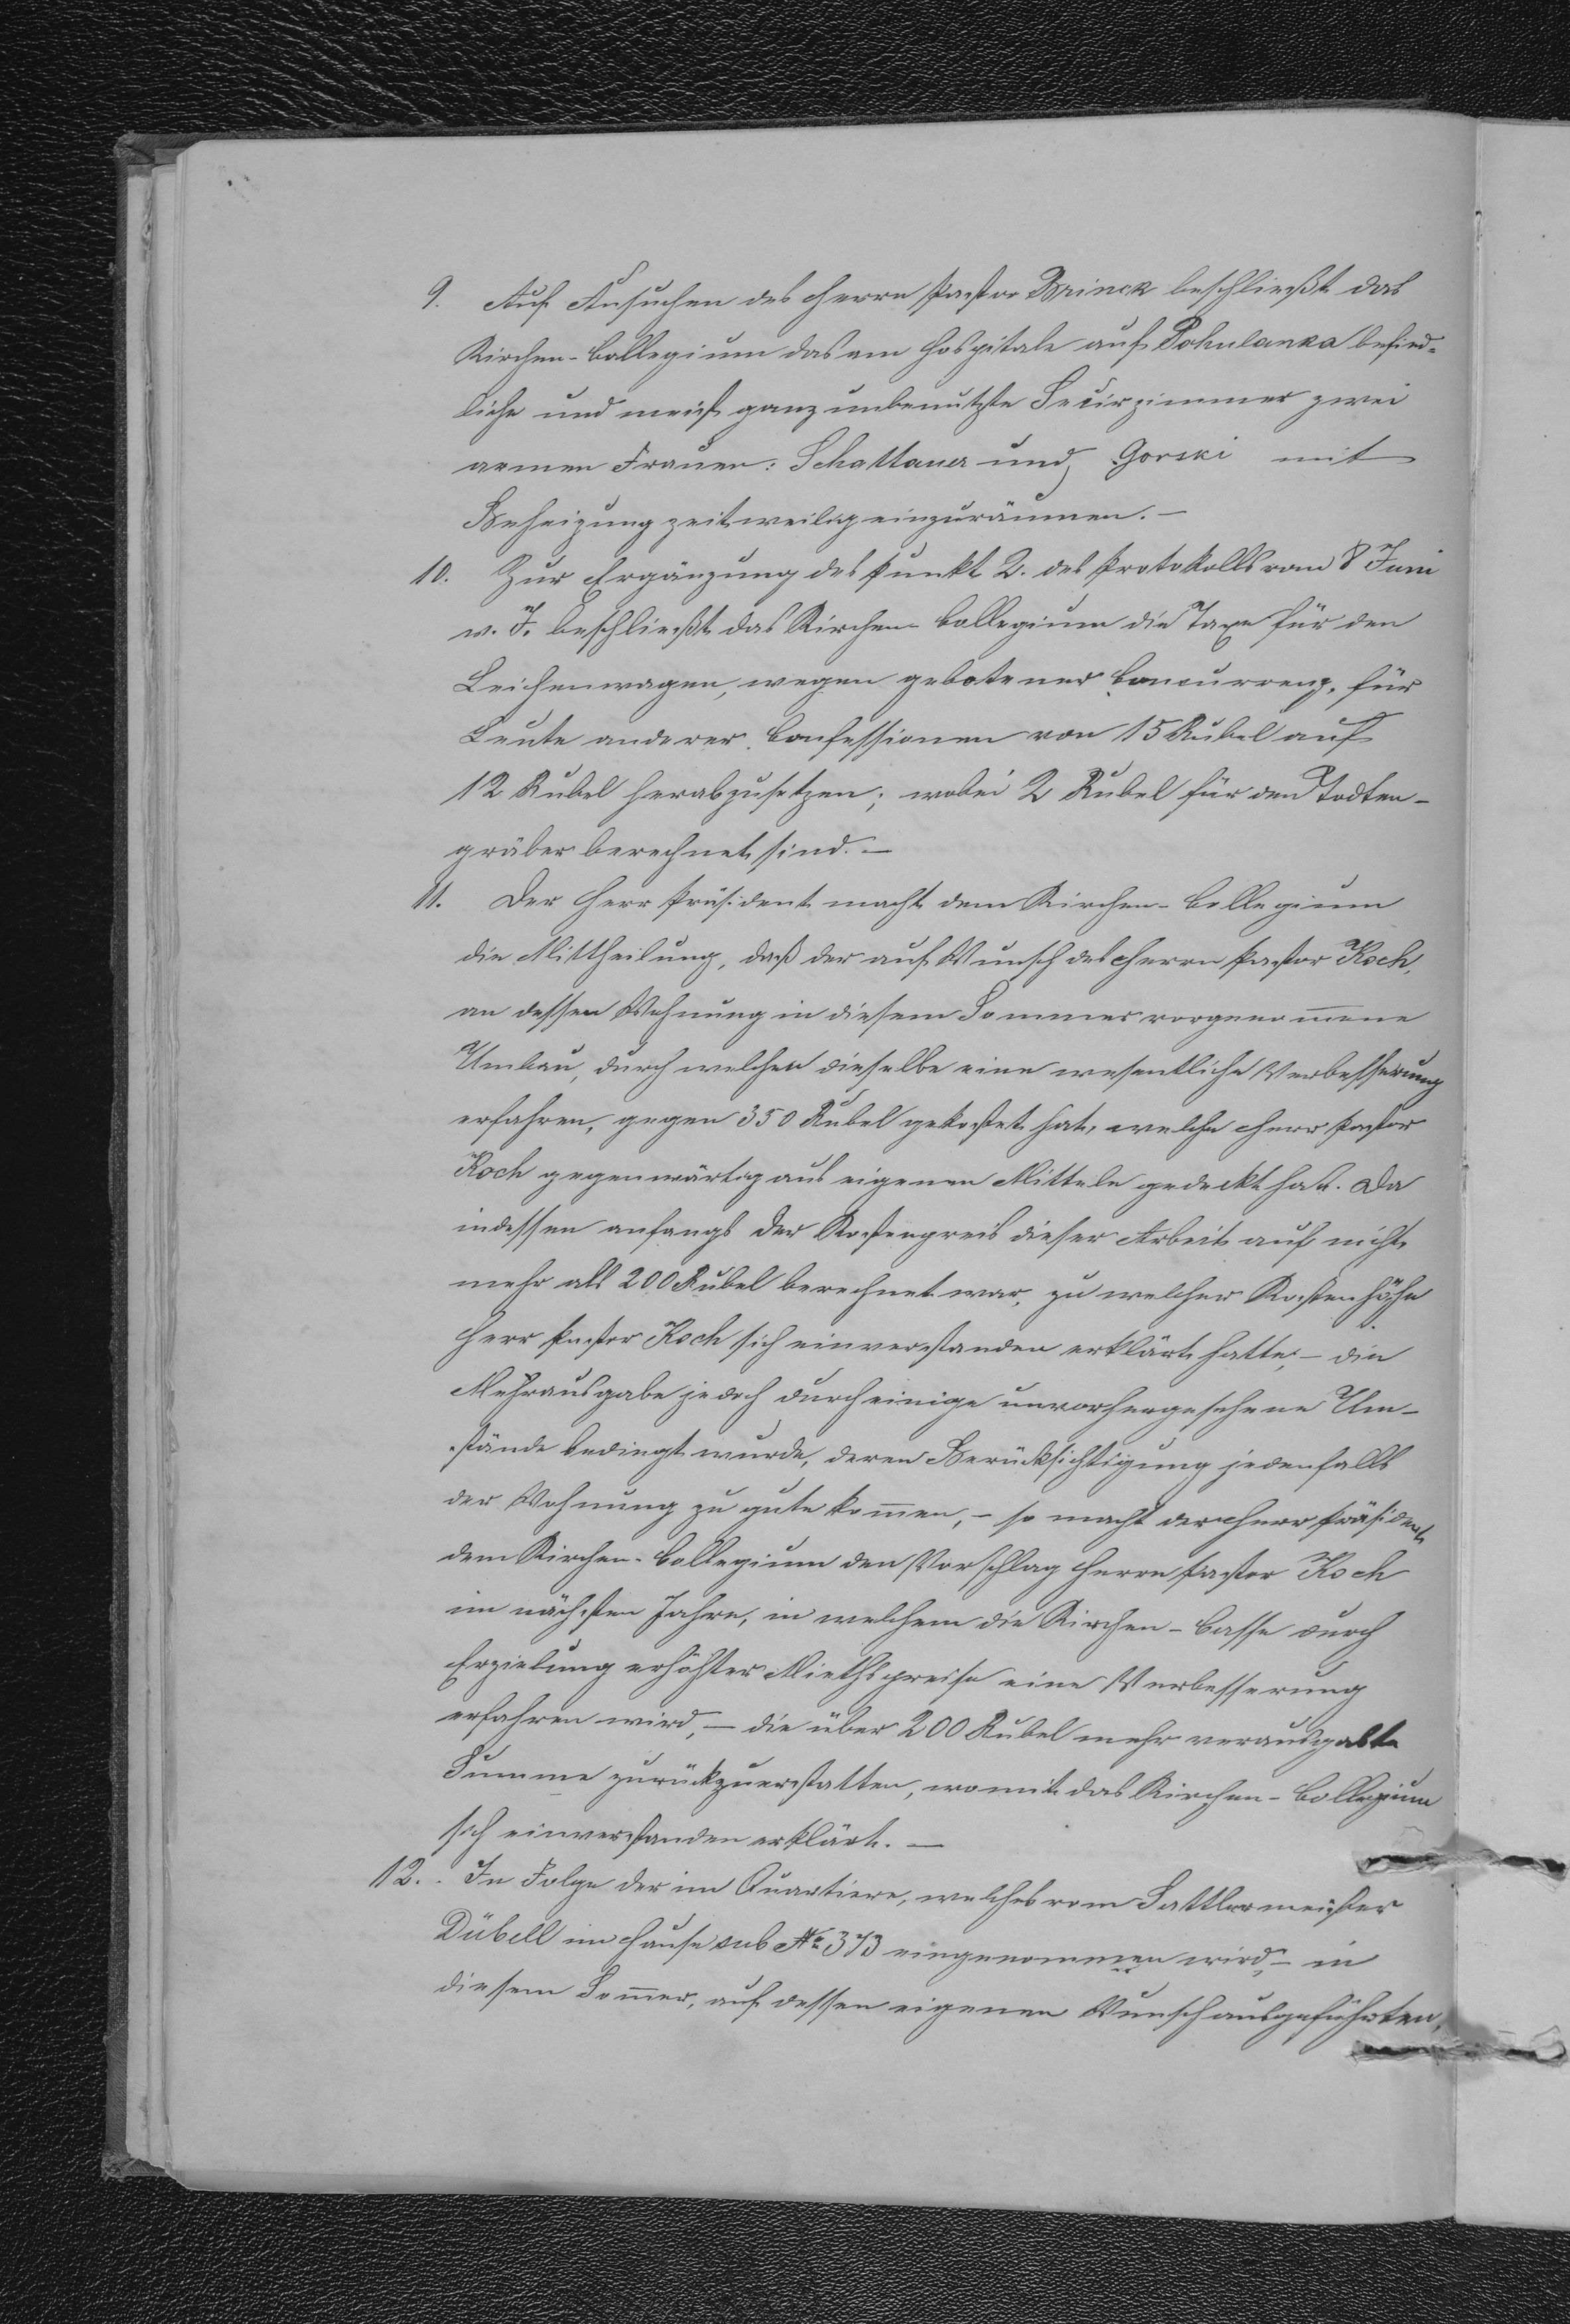 9. Auf Ansuchen des Herrn Pastor Brinck beschließt das
Kirchen-Collegium das am Hospitale auf Pohulanka befind-
liche und meist ganz unbenutzte Secirzimmer zwei
armen Frauen: Schattauer und Gorski mit
Beheizung zeitweilig einzuräumen. —
10. Zur Ergänzung des Punkt 2. des Protokolls vom 8 Juni
v. J. beschließt das Kirchen-Collegium die Taxe für den
Leichenwagen, wegen gebotener Concurrenz, für
Leute anderer Confessionen von 15 Rubel auf
12 Rubel herabzusetzen; wobei 2 Rubel für den Todten-
gräber berechnet sind. —
11. Der Herr Präsident macht dem Kirchen-Collegium
die Mittheilung, daß der auf Wunsch des Herrn Pastor Koch,
an dessen Wohnung in diesem Sommer vorgenommene
Umbau, durch welchen dieselbe eine wesentliche Verbesserung
erfahren, gegen 350 Rubel gekostet hat, welche Herr Pastor
Koch gegenwärtig aus eigenen Mitteln gedeckt hat. Da
indessen anfangs der Kostenpreis dieser Arbeit auf nicht
mehr als 200 Rubel berechnet war, zu welcher Kostenhöhe
Herr Pastor Koch sich einverstanden erklärt hatte, — die
Mehrausgabe jedoch durch einige unvorhergesehene Um-
stände bedingt wurde, deren Berücksichtigung jedenfalls
der Wohnung zu gute kommen, — so macht der Herr Präsident
dem Kirchen-Collegium den Vorschlag Herrn Pastor Koch
im nächsten Jahre, in welchem die Kirchen-Casse durch
Erzielung erhöhter Miethspreise eine Verbesserung
erfahren wird, — die über 200 Rubel mehr verausgabte
Summe zurückzuerstatten, womit das Kirchen-Collegium
sich einverstanden erklärt. —
12. In Folge der im Quartiere, welches vom Sattlermeister
Dübell im Hause sub № 373 eingenommen wird, — in
diesem Sommer, auf dessen eigenen Wunsch ausgeführten,